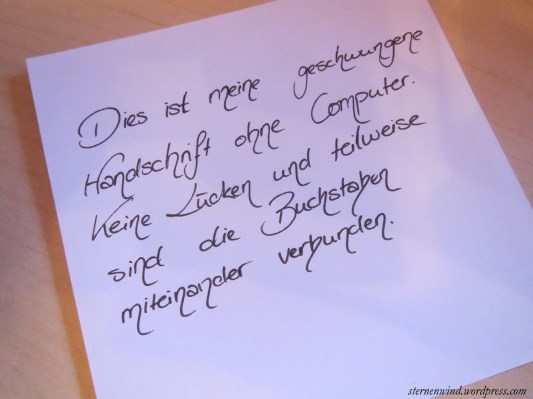 Dies ist meine geschwungene
Handschrift ohne Computer.
Keine Lücken und teilweise
sind die Buchstaben
miteinander verbunden.
sternenwind.wordpress.com